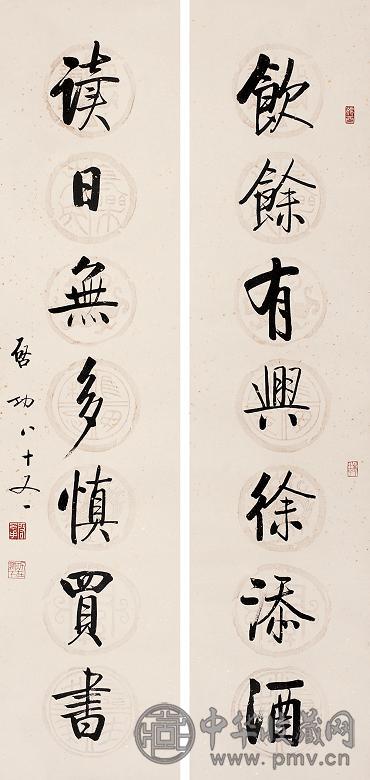 飲餘有興徐添酒
读日無多慎買書
啓功八十又一
中华收藏网
www.pmv.cn